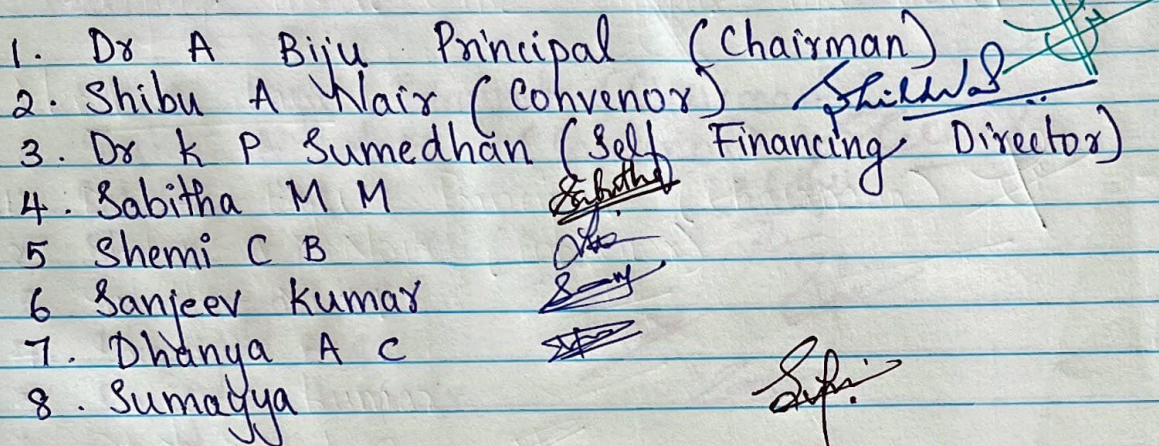 1. Dr A Biju Principal (Chairman)
2. Shibu A Nair (Convenor)
3. Dr K P Sumedhan (Self Financing Director)
4. Sabitha M M Sabitha
5 Shemi C B
6 Sanjeev Kumar
7. Dhanya A C
8. Sumayya